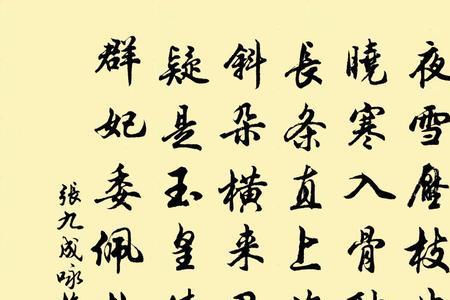 夜雪壓枝
曉寒入骨
長条直上
斜朵橫来
疑是玉皇
群妃委佩
張九成咏